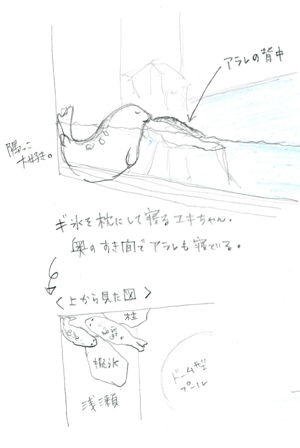 アラレの背中
隅っこ
大好き。
ギ氷を枕にして寝るユキちゃん。
奥のすき間でアラレも寝ている。
＜上から見た図＞
柱
擬氷
浅瀬
ドーム型
プール